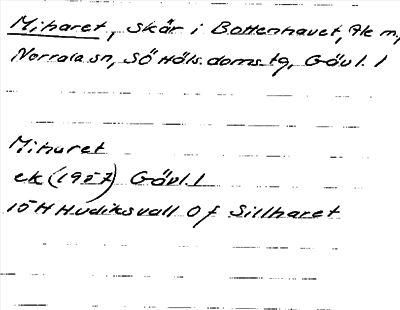 Miharet, skär i Bottenhavet, gk m,
Norrala sn, Sö Häls. doms. tg, Gävl. l
Mihuret
ek (1957) Gävl. l
15H Hudiksvall 0f Sillharet